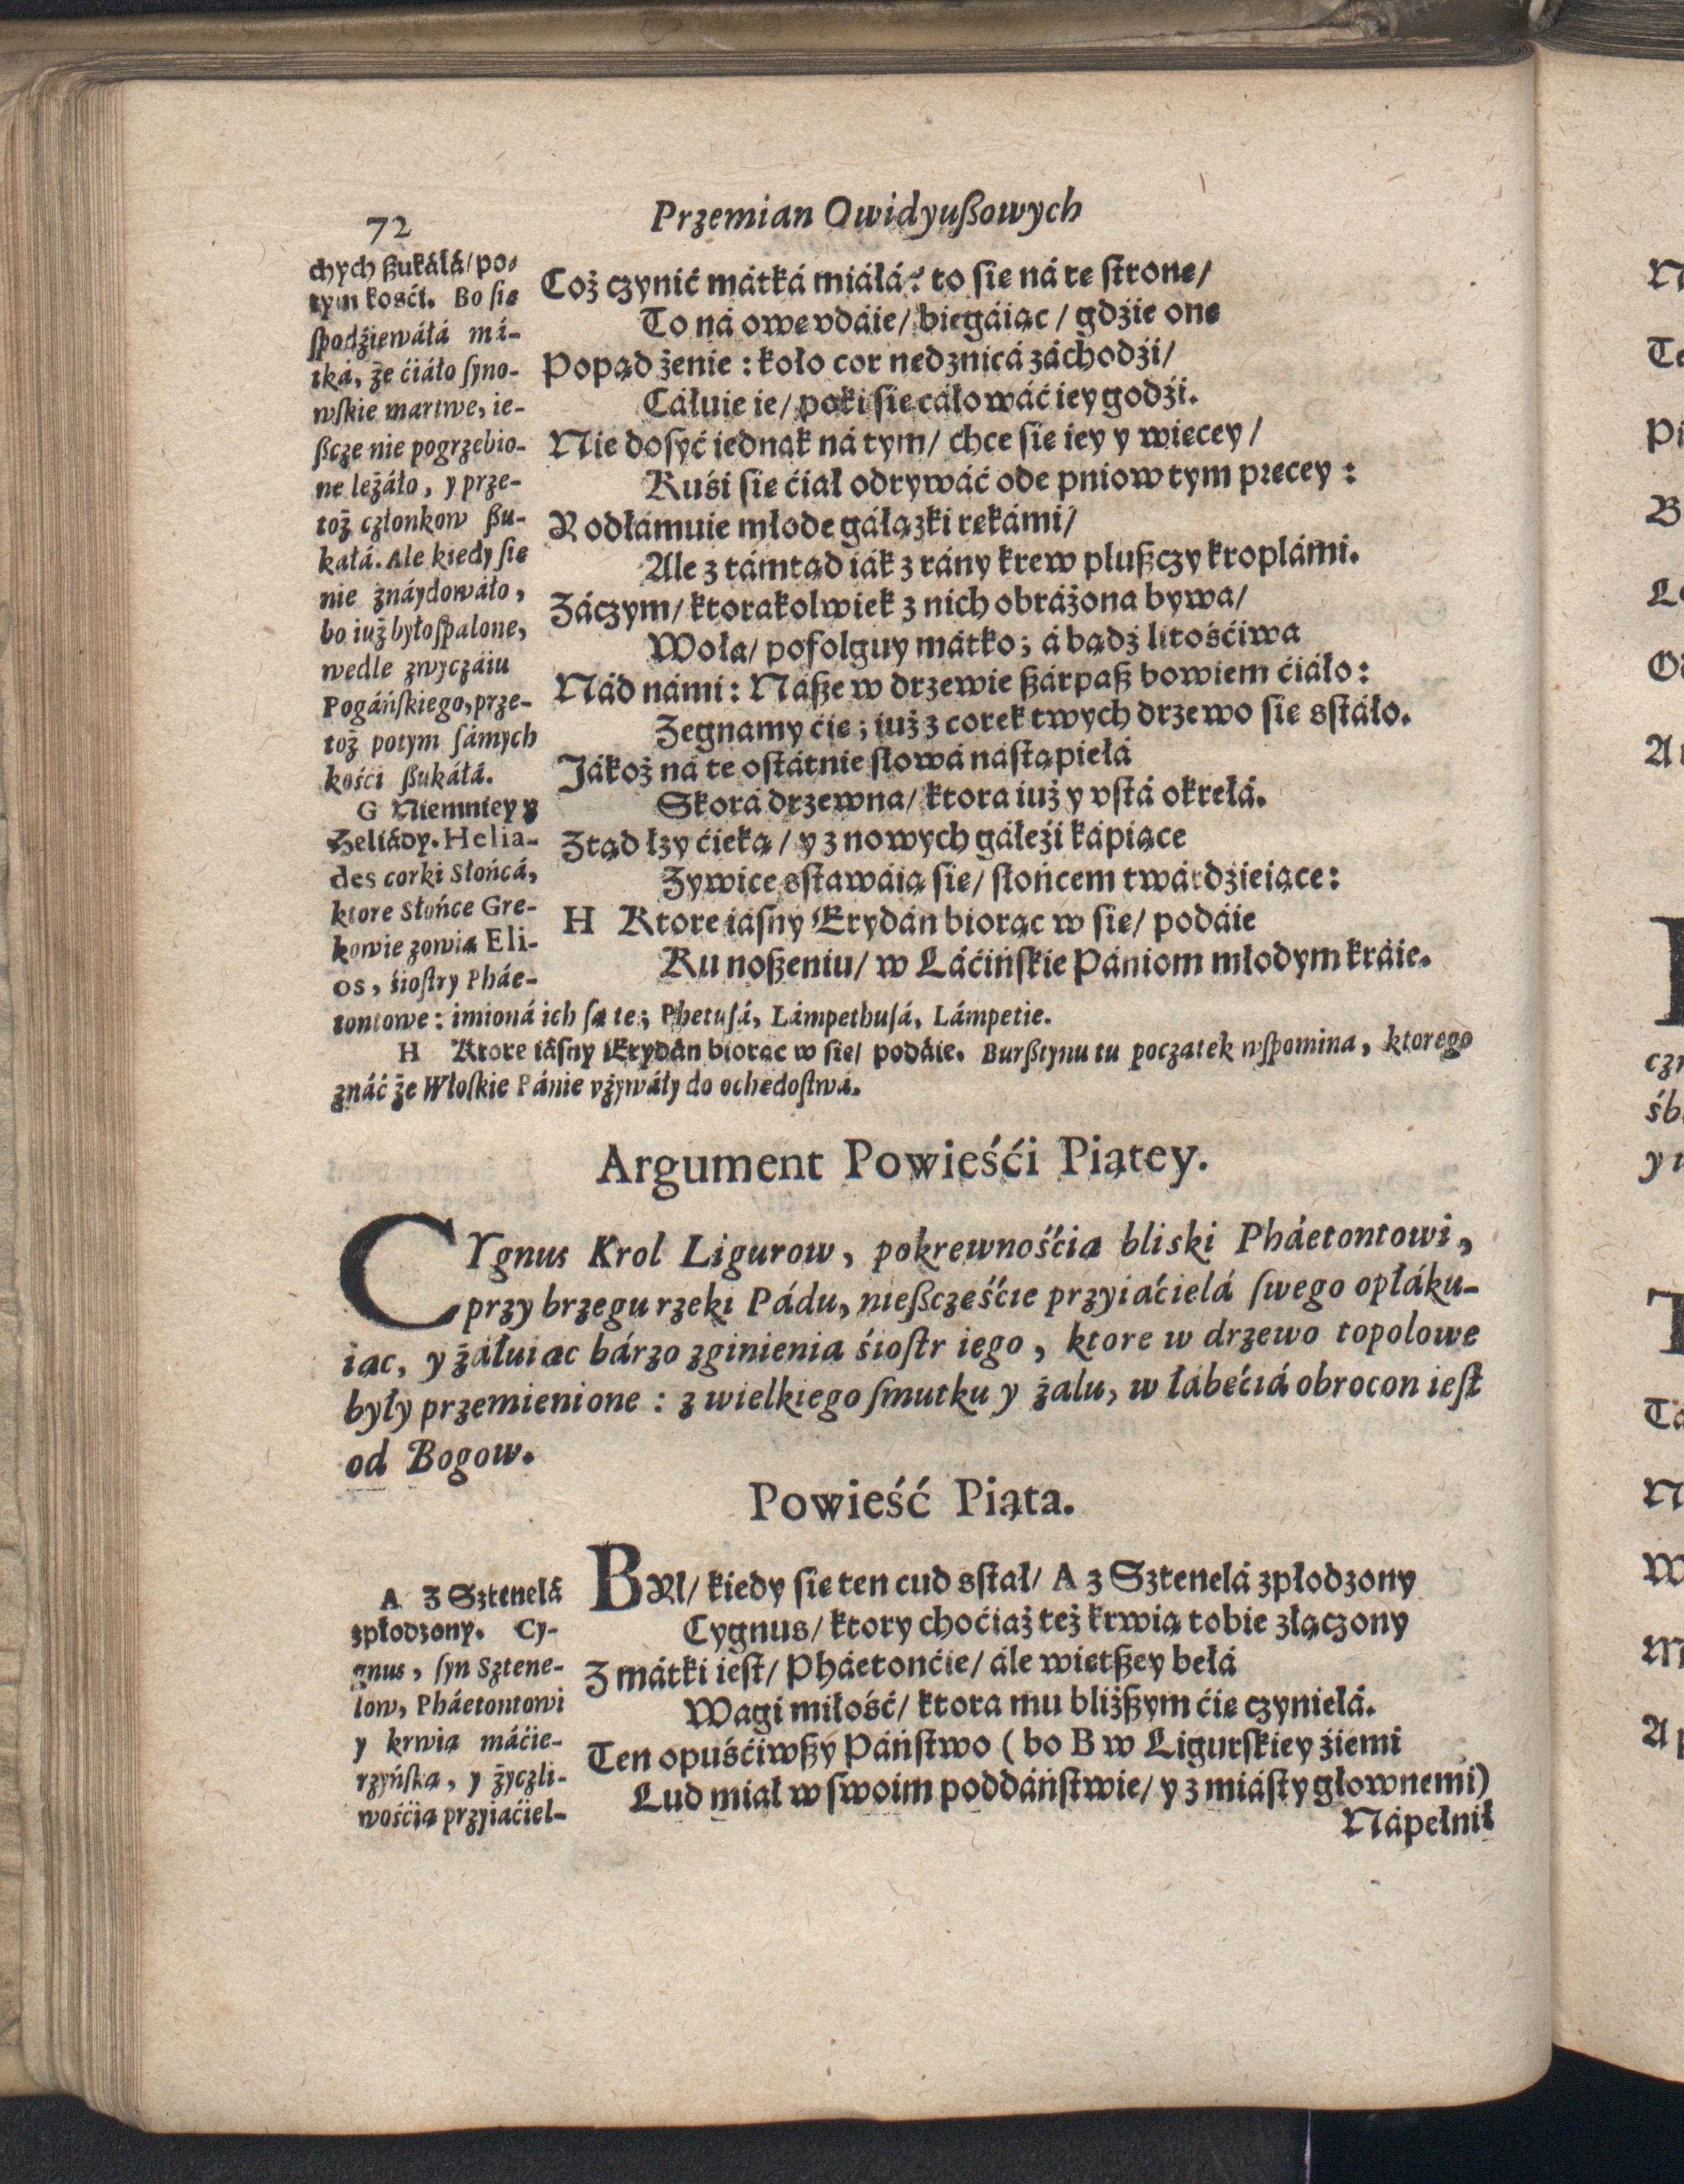 72
Przemian Owidyußowych
chych ßukáłá/ po-
tym kośći. Bo ſie
ſpodźiewáłá má-
tká, że ćiáło ſyno-
wſkie martwe, ie-
ßcze nie pogrzebio-
ne leżáło, y prze-
toż członkow ßu-
kałá. Ale kiedy ſie
nie znáydowáło,
bo iuż było ſpalone,
wedle zwyczáiu
Pogáńſkiego, prze-
toż potym ſámych
kośći ßukáłá.
G Niemniey y
Heliády. Helia-
des corki Słońcá,
ktore Słońce Gre-
kowie zowią Eli-
os, śioſtry Pháe-
tontowe: imioná ich ſą te; Phetuſá, Lámpethuſá, Lámpetie.
Coż czynić mátká miáłá? to ſie ná tę ſtronę/
To ná owę vdáie/ biegáiąc / gdźie onę
Popąd żenie: koło cor nędznicá záchodźi/
Cáłuie ie/ poki ſie cáłowáć iey godźi.
Nie dosyć iednak ná tym/ chce ſie iey y więcey/
Kuśi ſie ćiał odrywáć ode pniow tym pręcey:
Y odłámuie młode gáłązki rękámi/
Ale z támtąd iák z rány krew plußczy kroplámi.
Záczym/ ktorakolwiek z nich obráżona bywa/
Woła/ pofolguy mátko; á bądź litośćiwa
Nád námi: Náße w drzewie ßárpaß bowiem ćiáło:
Zegnamy ćię; iuż z corek twych drzewo ſie sſtáło.
Jákoż ná te oſtátnie słowá náſtąpiełá
Skorá drzewna/ ktora iuż y vſtá okrełá.
Ztąd łzy ćieką/ y z nowych gáłęźi kápiące
Zywice sſtawáią ſie/ słońcem twárdzieiące:
H Ktore iáſny Erydán biorąc w ſię/ podáie
Ku noßeniu/ w Láćińſkie Pániom młodym kráie.
H Ktore iáſny Erydán biorąc w ſię/ podáie. Burßtynu tu początek wſpomina, ktorego
znáć że Włoſkie Pánie vżywáły do ochędoſtwá.
Argument Powieśći Piątey.
CYgnus Krol Ligurow, pokrewnośćią bliski Pháetontowi,
przy brzegu rzeki Pádu, nießczęśćie przyiaćielá ſwego opłáku-
iąc, y żáłuiąc bárzo zginienia śioſtr iego, ktore w drzewo topolowe
były przemienione: z wielkiego ſmutku y żalu, w łábęćiá obrocon ieſt
od Bogow.
Powieść Piąta.
A Z Sztenelá
zpłodzony. Cy-
gnus, ſyn Sztene-
low, Pháetontowi
y krwią máćie-
rzyńſką, y życzli-
wośćią przyiaćiel-
BYł/ kiedy ſie ten cud sſtał/ A z Sztenelá zpłodzony
Cygnus/ ktory choćiaż też krwią tobie złączony
Z mátki ieſt/ Pháetonćie/ ále więtßey bełá
Wagi miłość/ ktora mu bliżßym ćię czyniełá.
Ten opuśćiwßy Páńſtwo ( bo B w Ligurſkiey źiemi
Lud miał w ſwoim poddáńſtwie/ y z miáſty głownemi)
Nápełnił